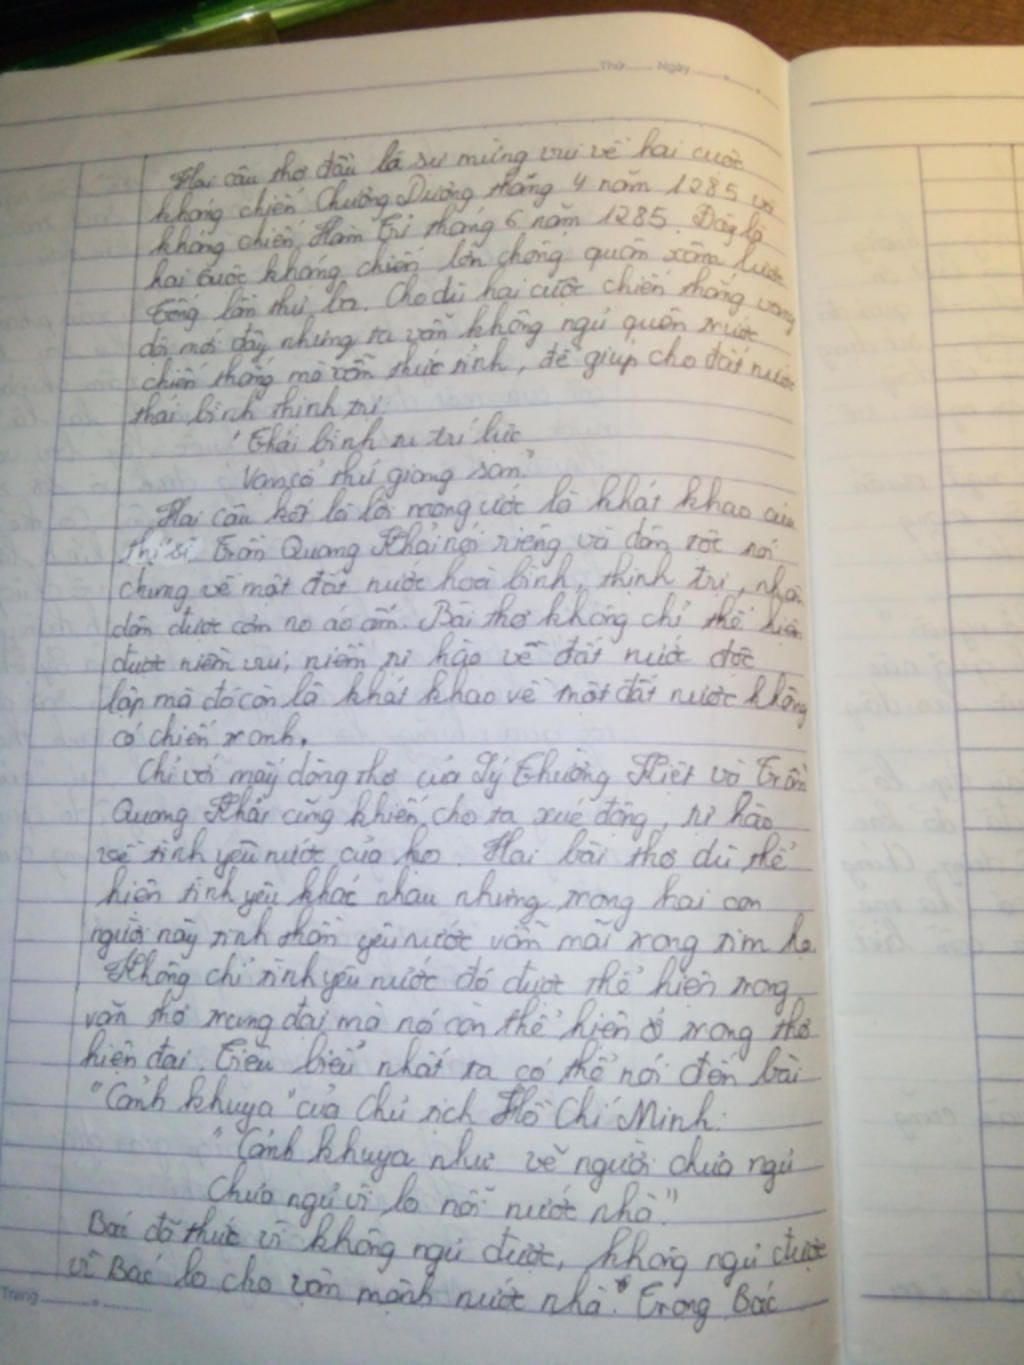 Thứ Ngày
Hai câu thơ đầu là sự mừng vui về hai cuộc
kháng chiến Chương Dương tháng 4 năm 1285 và
kháng chiến Hàm Tử tháng 6 năm 1285. Đây là
hai cuộc kháng chiến lớn chống quân xâm lược
Tống lần thứ ba. Cho dù hai cuộc chiến thắng vang
dội mới đây nhưng ta vẫn không ngủ quên trước
chiến thắng mà vẫn thức tỉnh, để giúp cho đất nước
thái bình thịnh trị.
"Thái bình tu trí lực
Vạn cổ thử giang san"
Hai câu kết là lời mong ước là khát khao của
thi sĩ Trần Quang Khải nói riêng và dân tộc nói
chung về một đất nước hoà bình, thịnh trị, nhân
dân được cơm no áo ấm. Bài thơ không chỉ thể hiện
được niềm vui, niềm tự hào về đất nước độc
lập mà đó còn là khát khao về một đất nước không
có chiến tranh.
Chỉ với mấy dòng thơ của Lý Thường Kiệt và Trần
Quang Khải cũng khiến cho ta xúc động, tự hào
về tình yêu nước của họ. Hai bài thơ dù thể
hiện tình yêu khác nhau nhưng trong hai con
người này tinh thần yêu nước vẫn mãi trong tim họ.
Không chỉ tình yêu nước đó được thể hiện trong
văn thơ trung đại mà nó còn thể hiện ở trong thơ
hiện đại. Tiêu biểu nhất ta có thể nói đến bài
"Cảnh khuya" của Chủ tịch Hồ Chí Minh:
"Cảnh khuya như vẽ người chưa ngủ
Chưa ngủ vì lo nỗi nước nhà"
Bác đã thức vì không ngủ được, không ngủ được
vì Bác lo cho vận mệnh nước nhà. Trong Bác
Trang